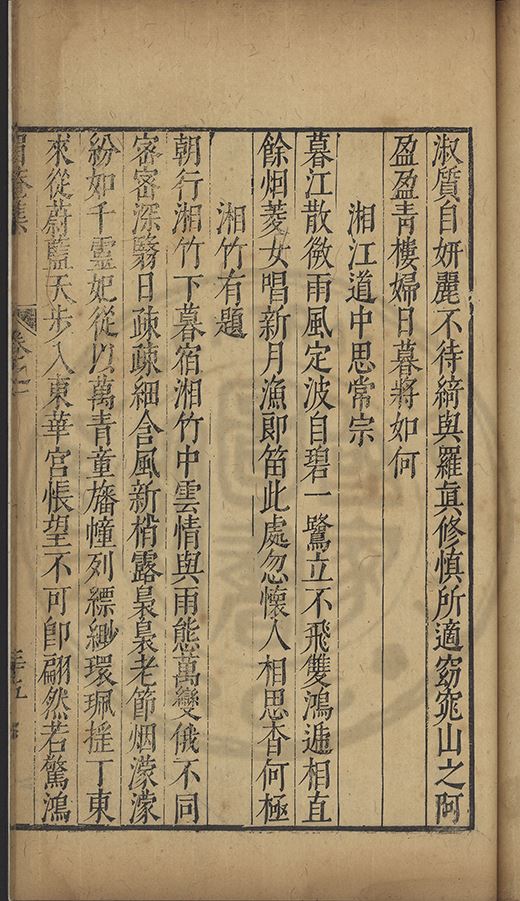 淑質自妍麗不待綺與羅眞修慎所適窈窕山之阿
盈盈靑樓婦日暮將如何
湘江道中思常宗
暮江散微雨風定波自碧一鷺立不飛雙鴻遞相直
餘烟菱女唱新月漁郎笛此處忽懷人相思杳何極
湘竹有題
朝行湘竹下暮宿湘竹中雲情與雨態萬變俄不同
密密深翳日疎疎細含風新梢露裊裊老節烟濛濛
紛如千靈妃從以萬青童旛幢列縹緲環珮搖丁東
來從蔚藍天步入東華宮悵望不可卽翩然若驚鴻
菴集
卷之一
五